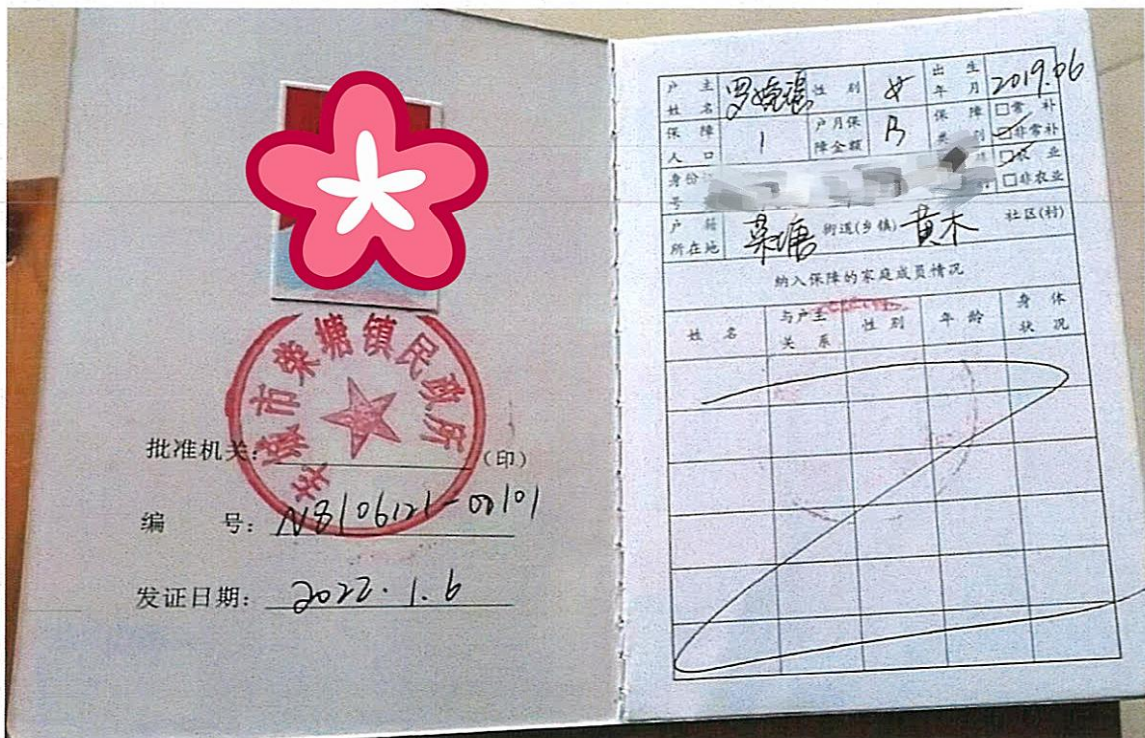 丰城市荣塘镇民政所
批准机关:
(印)
编 号: N8106121-00101
发证日期: 2022.1.6
户主姓名 罗婉 性别 女 出生年月 2019.06
保障人口 1 户月保障金额 B 保障类别 □常补
□非常补
身份证号 □农业
□非农业
户籍所在地 荣塘 街道(乡镇) 黄木 社区(村)
纳入保障的家庭成员情况
姓名 与户主关系 性别 年龄 身体状况